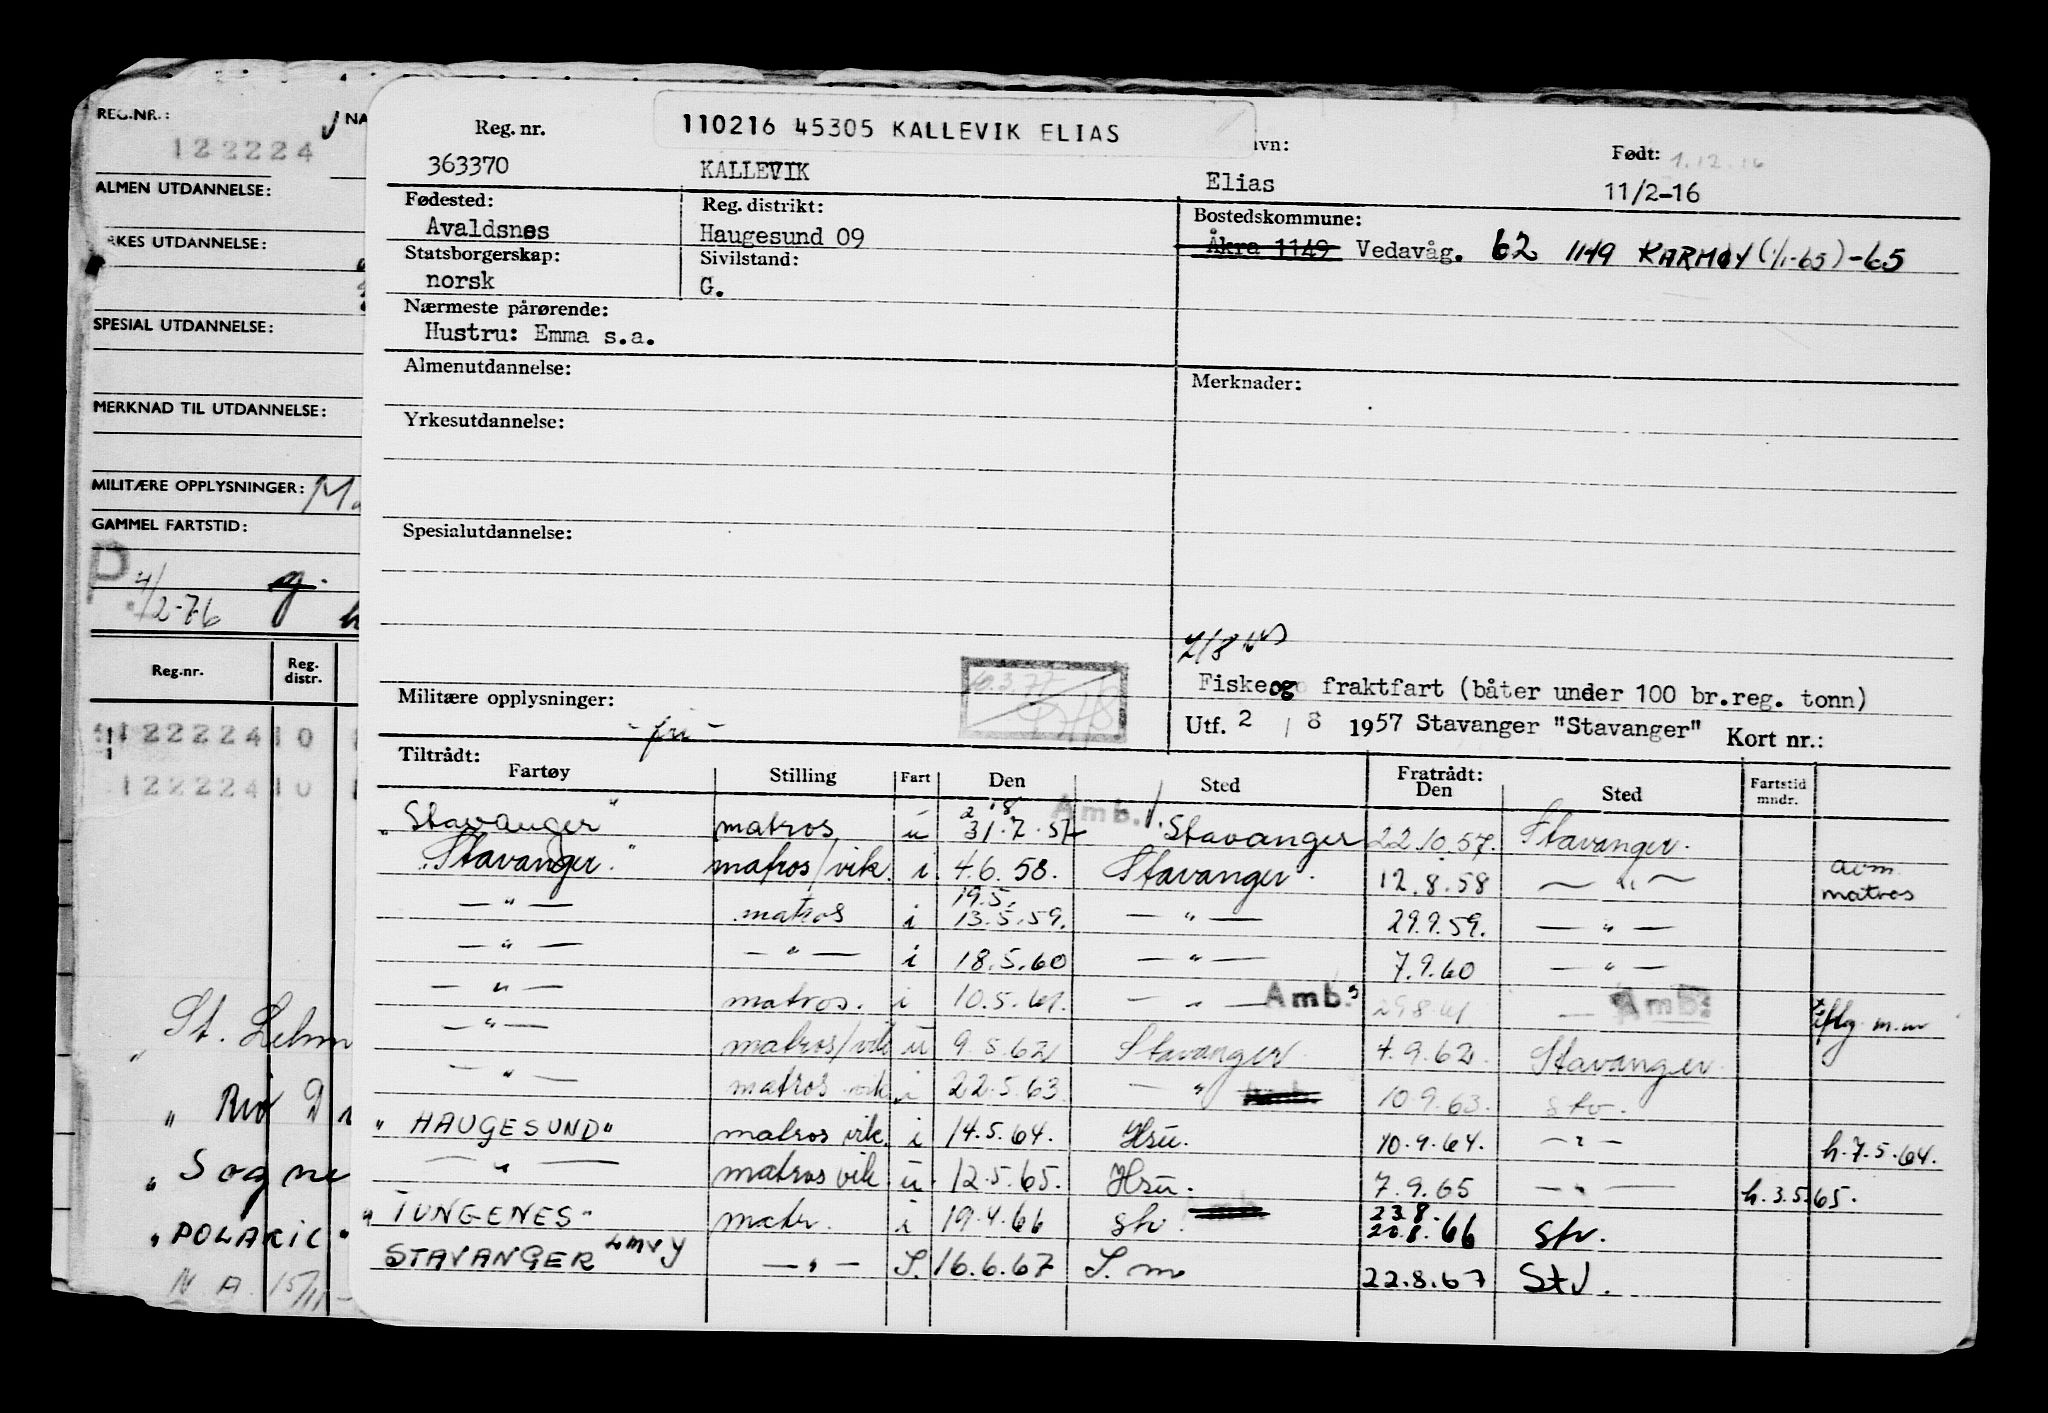 REG.NR.:
122224
ALMEN UTDANNELSE:
YRKES UTDANNELSE:
SPESIAL UTDANNELSE:
MERKNAD TIL UTDANNELSE:
MILITÆRE OPPLYSNINGER:
GAMMEL FARTSTID:
2-7-6
Reg.nr. Reg. distr.
122224 10
122224 10
St.
" Rio D
" Sogne
"POLARIC"
N A 15/11-
110216 45305 KALLEVIK ELIAS
Reg. nr. avn: Født: 1.12.16
363370 KALLEVIK Elias 11/2-16
Fødested: Reg. distrikt: Bostedskommune:
Avaldsnes Haugesund 09 Åkra 1149 Vedavåg. 62 1149 KARMØY (1/1-65)-65
Statsborgerskap: Sivilstand:
norsk G.
Nærmeste pårørende:
Hustru: Emma s.a.
Almenutdannelse: Merknader:
Yrkesutdannelse:
Spesialutdannelse:
2/8
Fiske og fraktfart (båter under 100 br.reg. tonn)
Militære opplysninger: -fri-
Utf. 2 / 8 1957 Stavanger "Stavanger" Kort nr.:
Tiltrådt: Fratrådt:
Fartøy Stilling Fart Den Sted Den Sted Fartstid mndr.
"Stavanger" matros u 2.8 31.7.57 Amb. Stavanger 22.10.57. Stavanger.
"Stavanger" matros/vik. i 4.6.58. Stavanger. 12.8.58 — " — avm. matros
— " — matros i 19.5. 13.5.59. — " — 29.9.59. — " —
— " — — " — i 18.5.60 — " — 7.9.60 — " —
— " — matros. i 10.5.61. — " — Amb. 29.8.61 — Amb.
— " — matros/vik u 9.5.62 Stavanger. 4.9.62. Stavanger.
— " — matros vik. i 22.5.63. — " — 10.9.63. Stv.
"HAUGESUND" matros vik. i 14.5.64. Hsu. 10.9.64. — " — h.7.5.64.
— " — matros vik. u. 12.5.65. Hsu. 7.9.65 — " — h.3.5.65.
"TUNGENES" matr. i 19.4.66 Stv. 23.8. 20.8.66 Stv.
STAVANGER LMVY — " — S. 16.6.67 S.m 22.8.67 Stv.